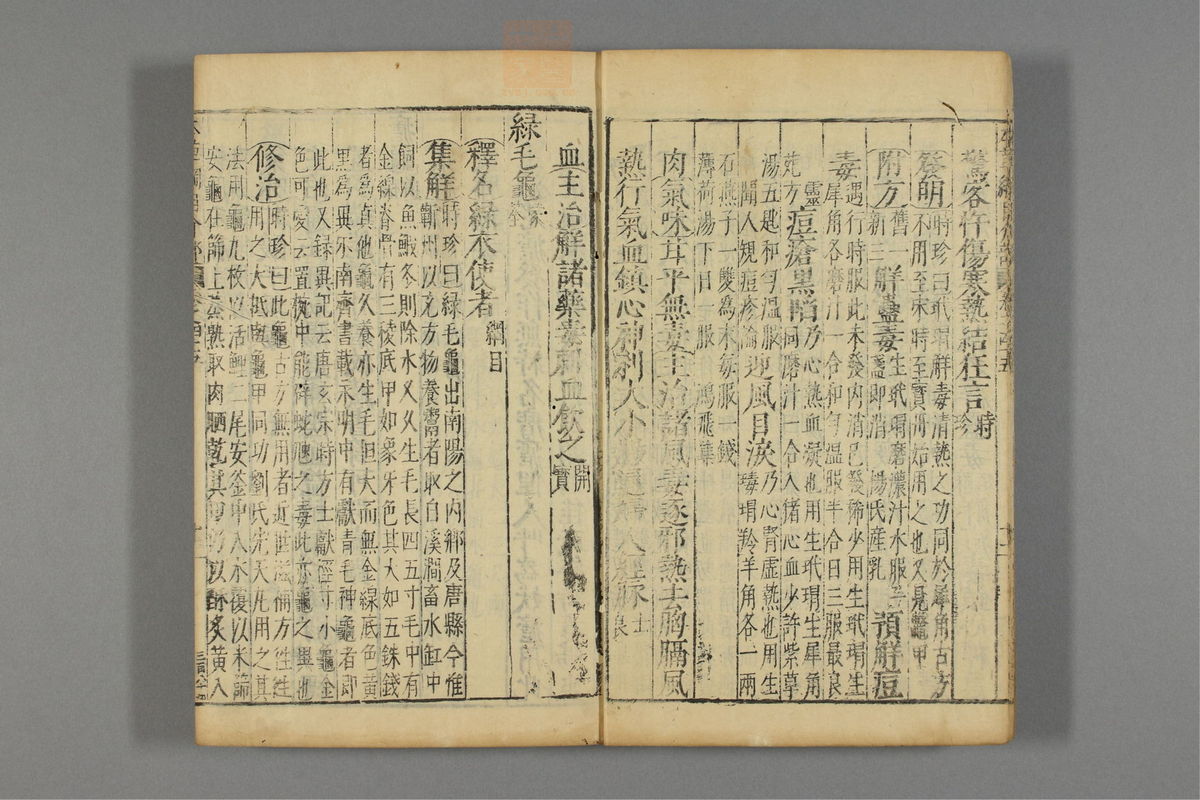 驚客忤傷寒熱結狂言時珍
發明時珍曰玳瑁解毒清熱之功同於犀角古方
不用至宋時至寶丹始用之也又見鼈甲
附方舊一新三解蠱毒生玳瑁磨濃汁水服
盞即消楊氏產乳預解痘
毒遇行時服此未發內消已發稀少用生玳瑁生
犀角各磨汁一合和勻溫服半合日三服最良
靈苑方痘瘡黑陷乃心熱血凝也用生玳瑁生犀角
同磨汁一合入猪心血少許紫草
湯五匙和勻溫服
聞人規痘疹論迎風目淚乃心腎虛熱也用生
瑇瑁羚羊角各一兩
石燕子一雙為末每服一錢
薄荷湯下日一服鴻飛集
肉氣味甘平無毒主治諸風毒逐邪熱去胸膈風
熱行氣血鎮心神利大小腸通婦人經脉士良
血主治解諸藥毒刺血飲之開寶
綠毛龜蒙筌
釋名綠衣使者綱目
集解時珍曰綠毛龜出南陽之內鄉及唐縣今惟
蘄州以充方物養鬻者取自溪澗畜水缸中
飼以魚鰕冬則除水久久生毛長四五寸毛中有
金線脊骨有三稜底甲如象牙色其大如五銖錢
者為真他龜久養亦生毛但大而無金線底色黃
黑為異爾南齊書載永明中有獻青毛神龜者即
此也又錄異記云唐玄宗時方士獻徑寸小龜金
色可愛云置椀中能辟蛇虺之毒此亦龜之異也
修治時珍曰此龜古方無用者近世滋補方往往
用之大抵與龜甲同功劉氏先天丸用之其
法用龜九枚以活鯉二尾安釜中入水覆以米篩
安龜在篩上蒸熟取肉晒乾其甲仍以酥炙黃入